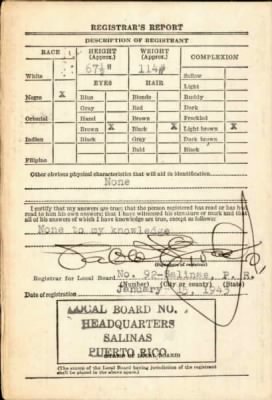 REGISTRAR'S REPORT
DESCRIPTION OF REGISTRANT
RACE HEIGHT (Approx.) WEIGHT (Approx.) COMPLEXION
67½" 114#
White Sallow
EYES HAIR Light
Negro X Blue Blonde Ruddy
Gray Red Dark
Oriental Hazel Brown Freckled
Brown X Black X Light brown X
Indian Black Gray Dark brown
Bald Black
Filipino
Other obvious physical characteristics that will aid in identification
None
I certify that my answers are true; that the person registered has read or has had
read to him his own answers; that I have witnessed his signature or mark and that
all of his answers of which I have knowledge are true, except as follows:
None to my knowledge
(Signature of registrar)
Registrar for Local Board No. 92-Salinas, P. R.
(Number) (City or county) (State)
Date of registration January 15, 1943
LOCAL BOARD NO.
HEADQUARTERS
SALINAS
PUERTO RICO
(STAMP OF LOCAL BOARD)
(The stamp of the Local Board having jurisdiction of the registrant
shall be placed in the above space.)